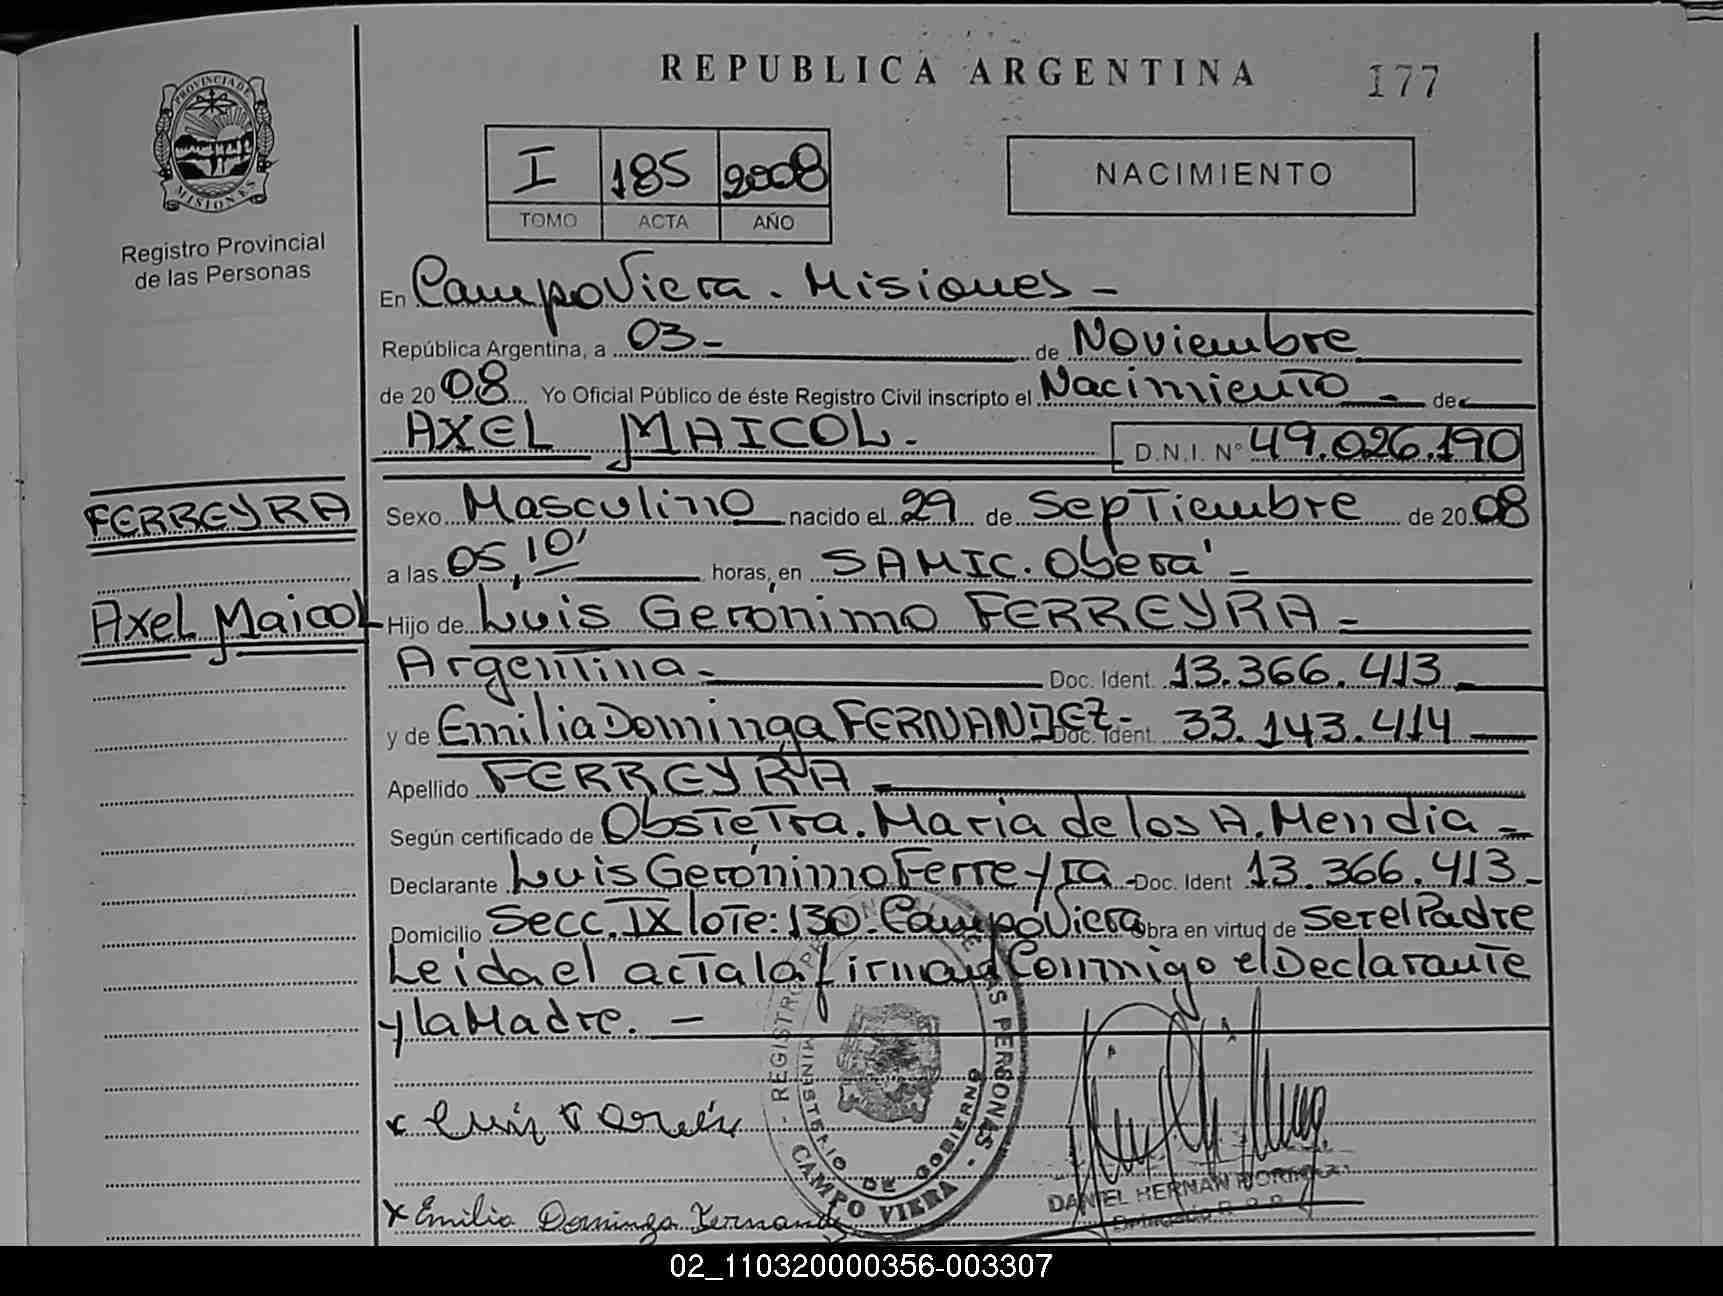 REPUBLICA ARGENTINA
177
PROVINCIA DE
MISIONES
Registro Provincial
de las Personas
I 185 2008
TOMO ACTA AÑO
NACIMIENTO
En CampoViera. Misiones -
República Argentina, a 03- de Noviembre
de 2008 Yo Oficial Público de éste Registro Civil inscripto el Nacimiento - de
AXEL MAICOL. D.N.I. Nº 49.026.190
FERREYRA
Sexo Masculino nacido el 29 de Septiembre de 2008
a las 05,10' horas, en SAMIC. Oberá -
Axel Maicol
Hijo de Luis Gerónimo FERREYRA -
Argentina - Doc. Ident. 13.366.413
y de Emilia Dominga FERNANDEZ - Doc. Ident. 33.143.414
Apellido FERREYRA -
Según certificado de Obstetra. Maria de los A. Mendia -
Declarante Luis Gerónimo Ferreyra - Doc. Ident 13.366.413 -
Domicilio Secc. IX lote: 130. CampoViera Obra en virtud de Ser el Padre
Leida el acta la firman Conmigo el Declarante
y la Madre. -
x Luis
x Emilia Dominga Fernandez
REGISTRO PROVINCIAL DE LAS PERSONAS
MINISTERIO DE GOBIERNO
- CAMPO VIERA -
DANIEL HERNAN
02_110320000356-003307